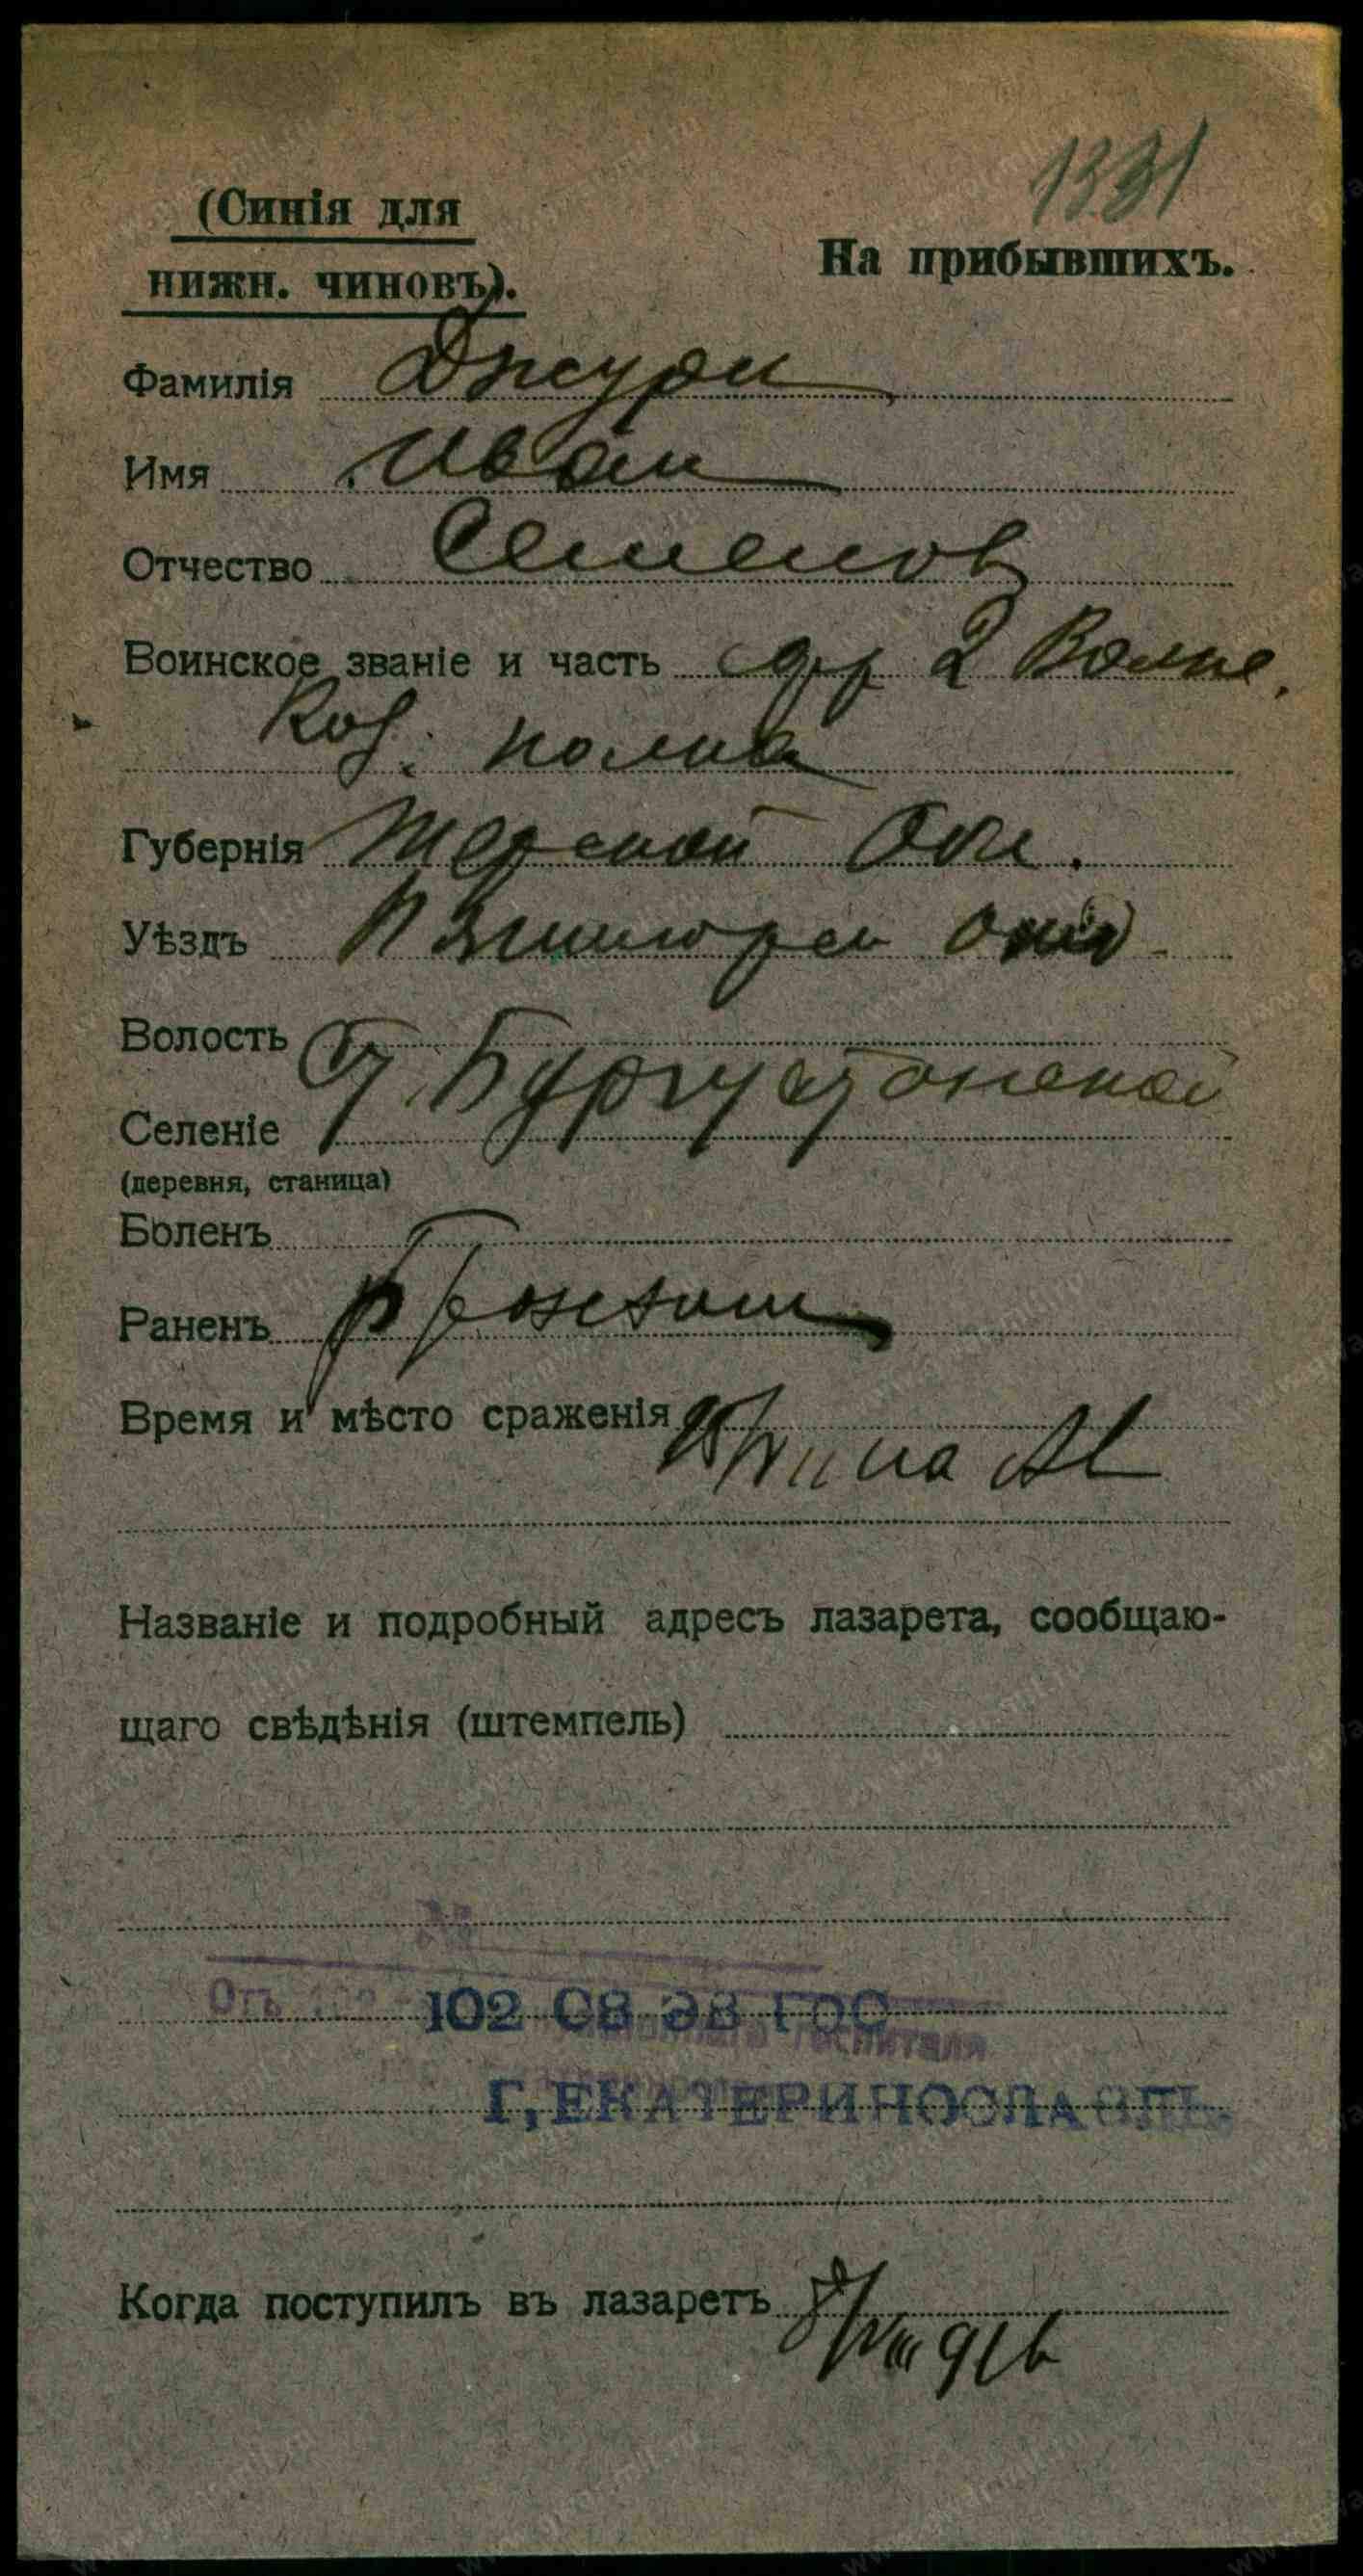 1331
(Синія для
нижн. чиновъ).
На прибывшихъ.
Фамилія Джури
Имя Иван
Отчество Семенов
Воинское званіе и часть 2 Волж.
Каз. полка
Губернія Терской Обл.
Уѣздъ Пятигорск
Волость
Ст Бургустанской
Селеніе
(деревня, станица)
Боленъ
Раненъ
Время и мѣсто сраженія
Названіе и подробный адресъ лазарета, сообщаю-
щаго свѣдѣнія (штемпель)
102 СВ ЭВ ГОС
госпиталя
Г, ЕКАТЕРИНОСЛАВЛЬ.
Когда поступилъ въ лазаретъ 8/VIII 916